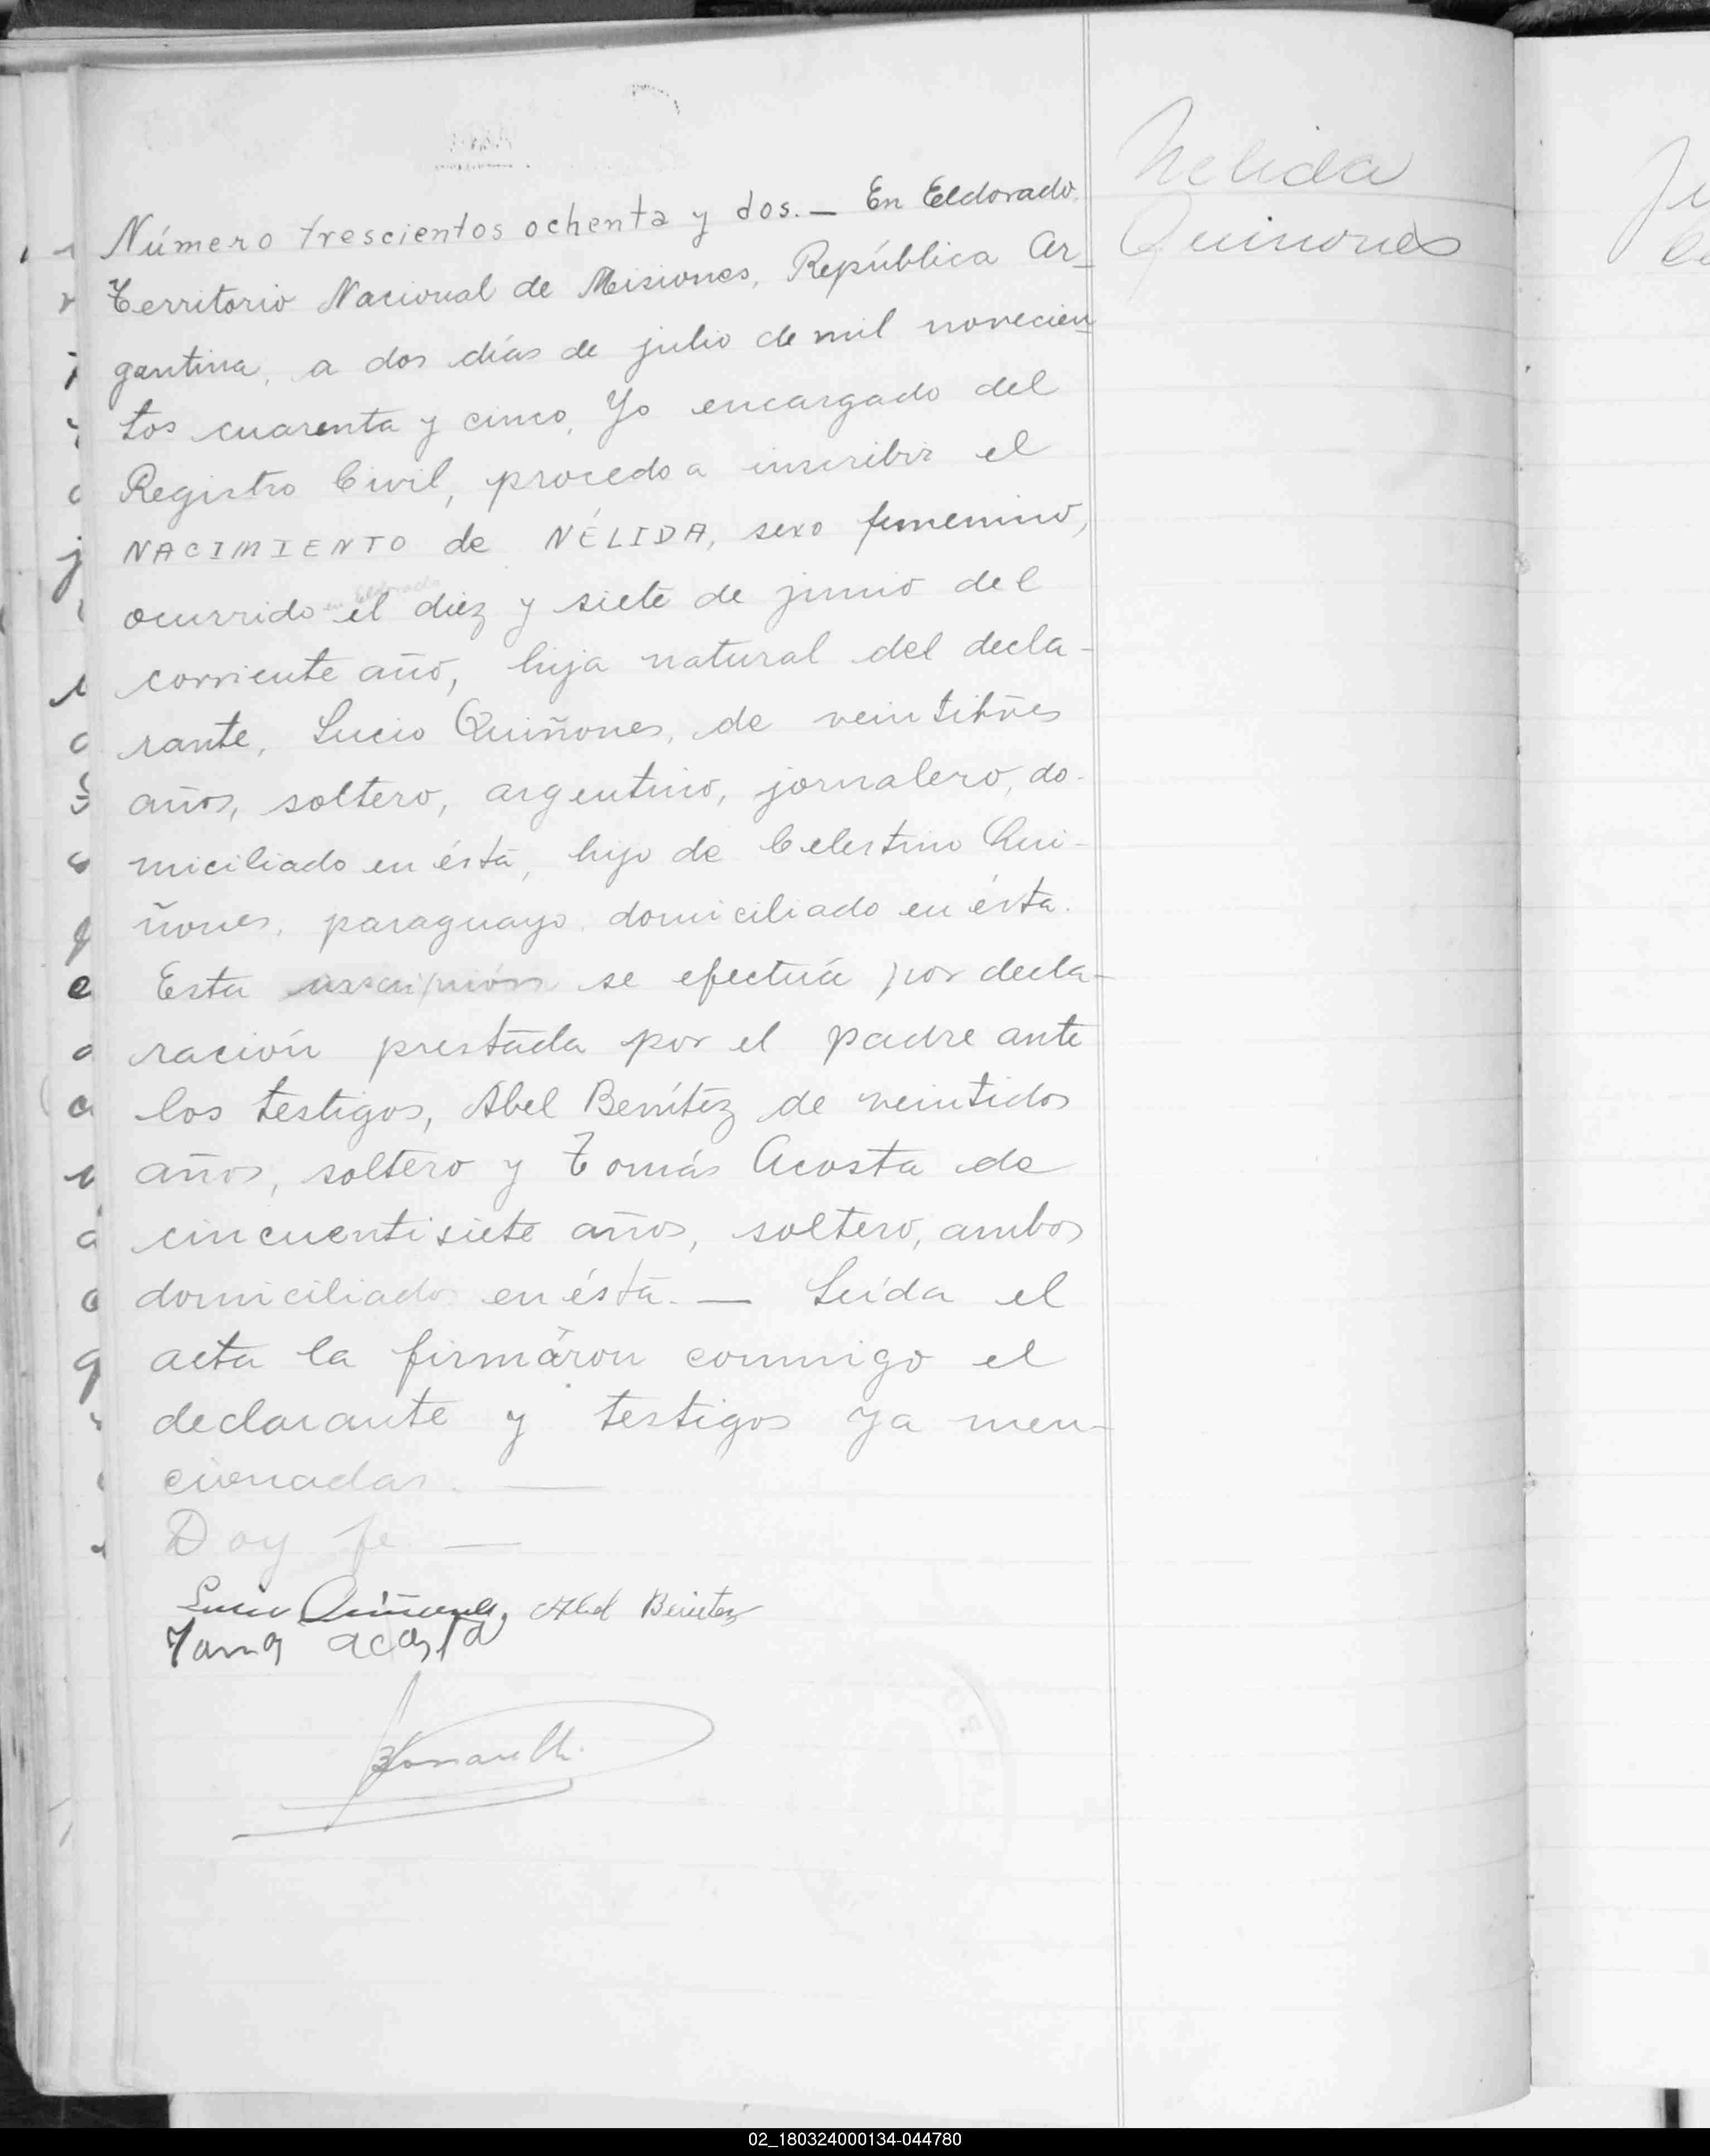 Nelida
Quinones
Número trescientos ochenta y dos.— En Eldorado,
Territorio Nacional de Misiones, República Ar-
gentina, a dos días de julio de mil novecien-
tos cuarenta y cinco, Yo encargado del
Registro Civil, procedo a inscribir el
NACIMIENTO de NÉLIDA, sexo femenino,
en Eldorado
ocurrido el diez y siete de junio del
corriente año, hija natural del decla-
rante, Lucio Quiñones, de veintitrés
años, soltero, argentino, jornalero, do-
miciliado en ésta, hijo de Celestino Qui-
ñones, paraguayo, domiciliado en ésta.
Esta inscripción se efectúa por decla-
ración prestada por el padre ante
los testigos, Abel Benítez de veintidos
años, soltero y Tomás Acosta de
cincuentisiete años, soltero, ambos
domiciliados en ésta. — Leída el
acta la firmáron conmigo el
declarante y testigos ya men-
cionadas. —
Doy fe —
Lucio Quiñones, Abel Benitez
Tomas acosta
02_180324000134-044780